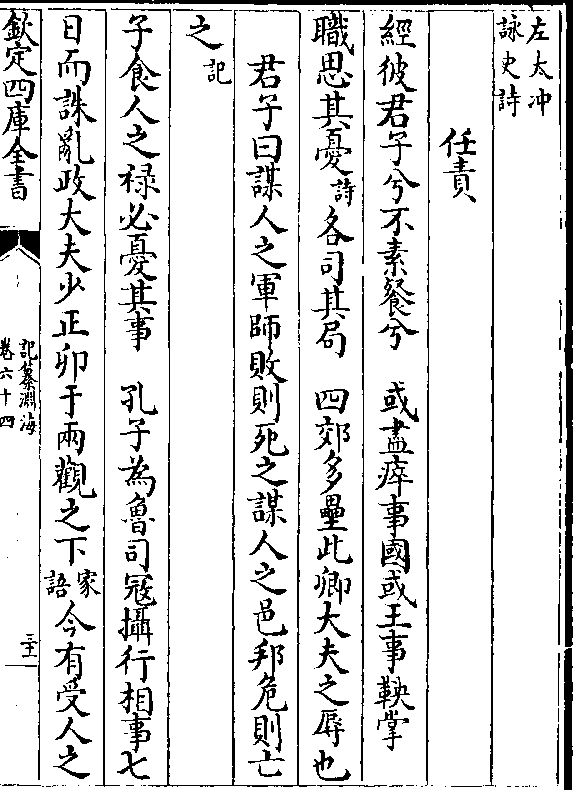 左太冲
詠史詩
任責
經彼君子兮不素餐兮　或盡瘁事國或王事鞅掌
職思其憂詩各司其局　四郊多壘此卿大夫之辱也
君子曰謀人之軍師敗則死之謀人之邑邦危則亡
之記
子食人之祿必憂其事　孔子為魯司寇攝行相事七
日而誅亂政大夫少正卯于兩觀之下家語今有受人之
欽定四庫全書
記纂淵海
卷六十四
三十一